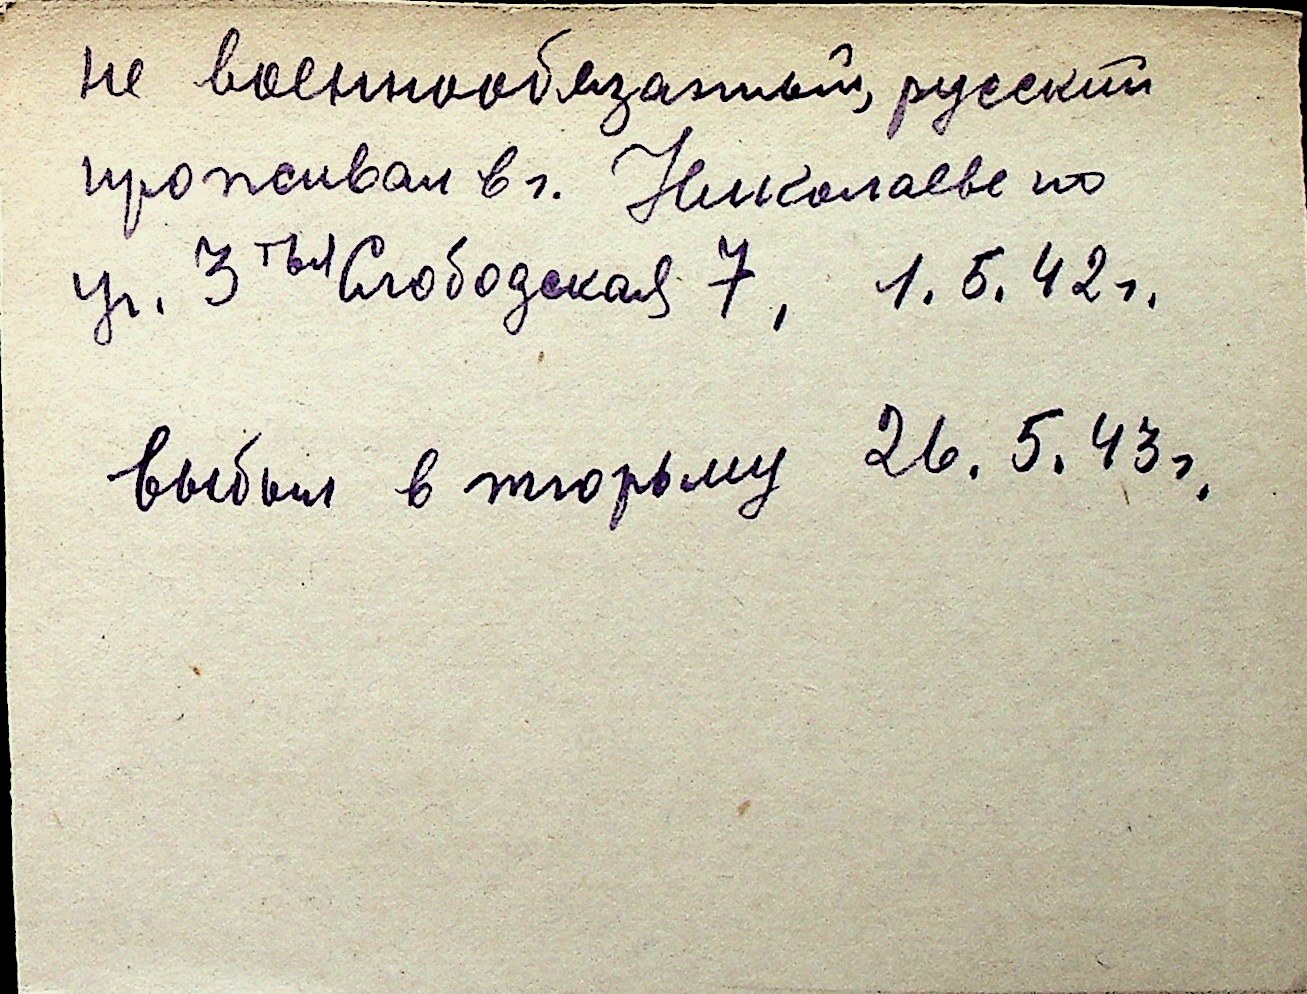 не военнообязанный, русский
проживал в г. Николаеве по
ул. 3тья Слободская 7, 1.5.42г.
выбыл в тюрьму 26.5.43г.